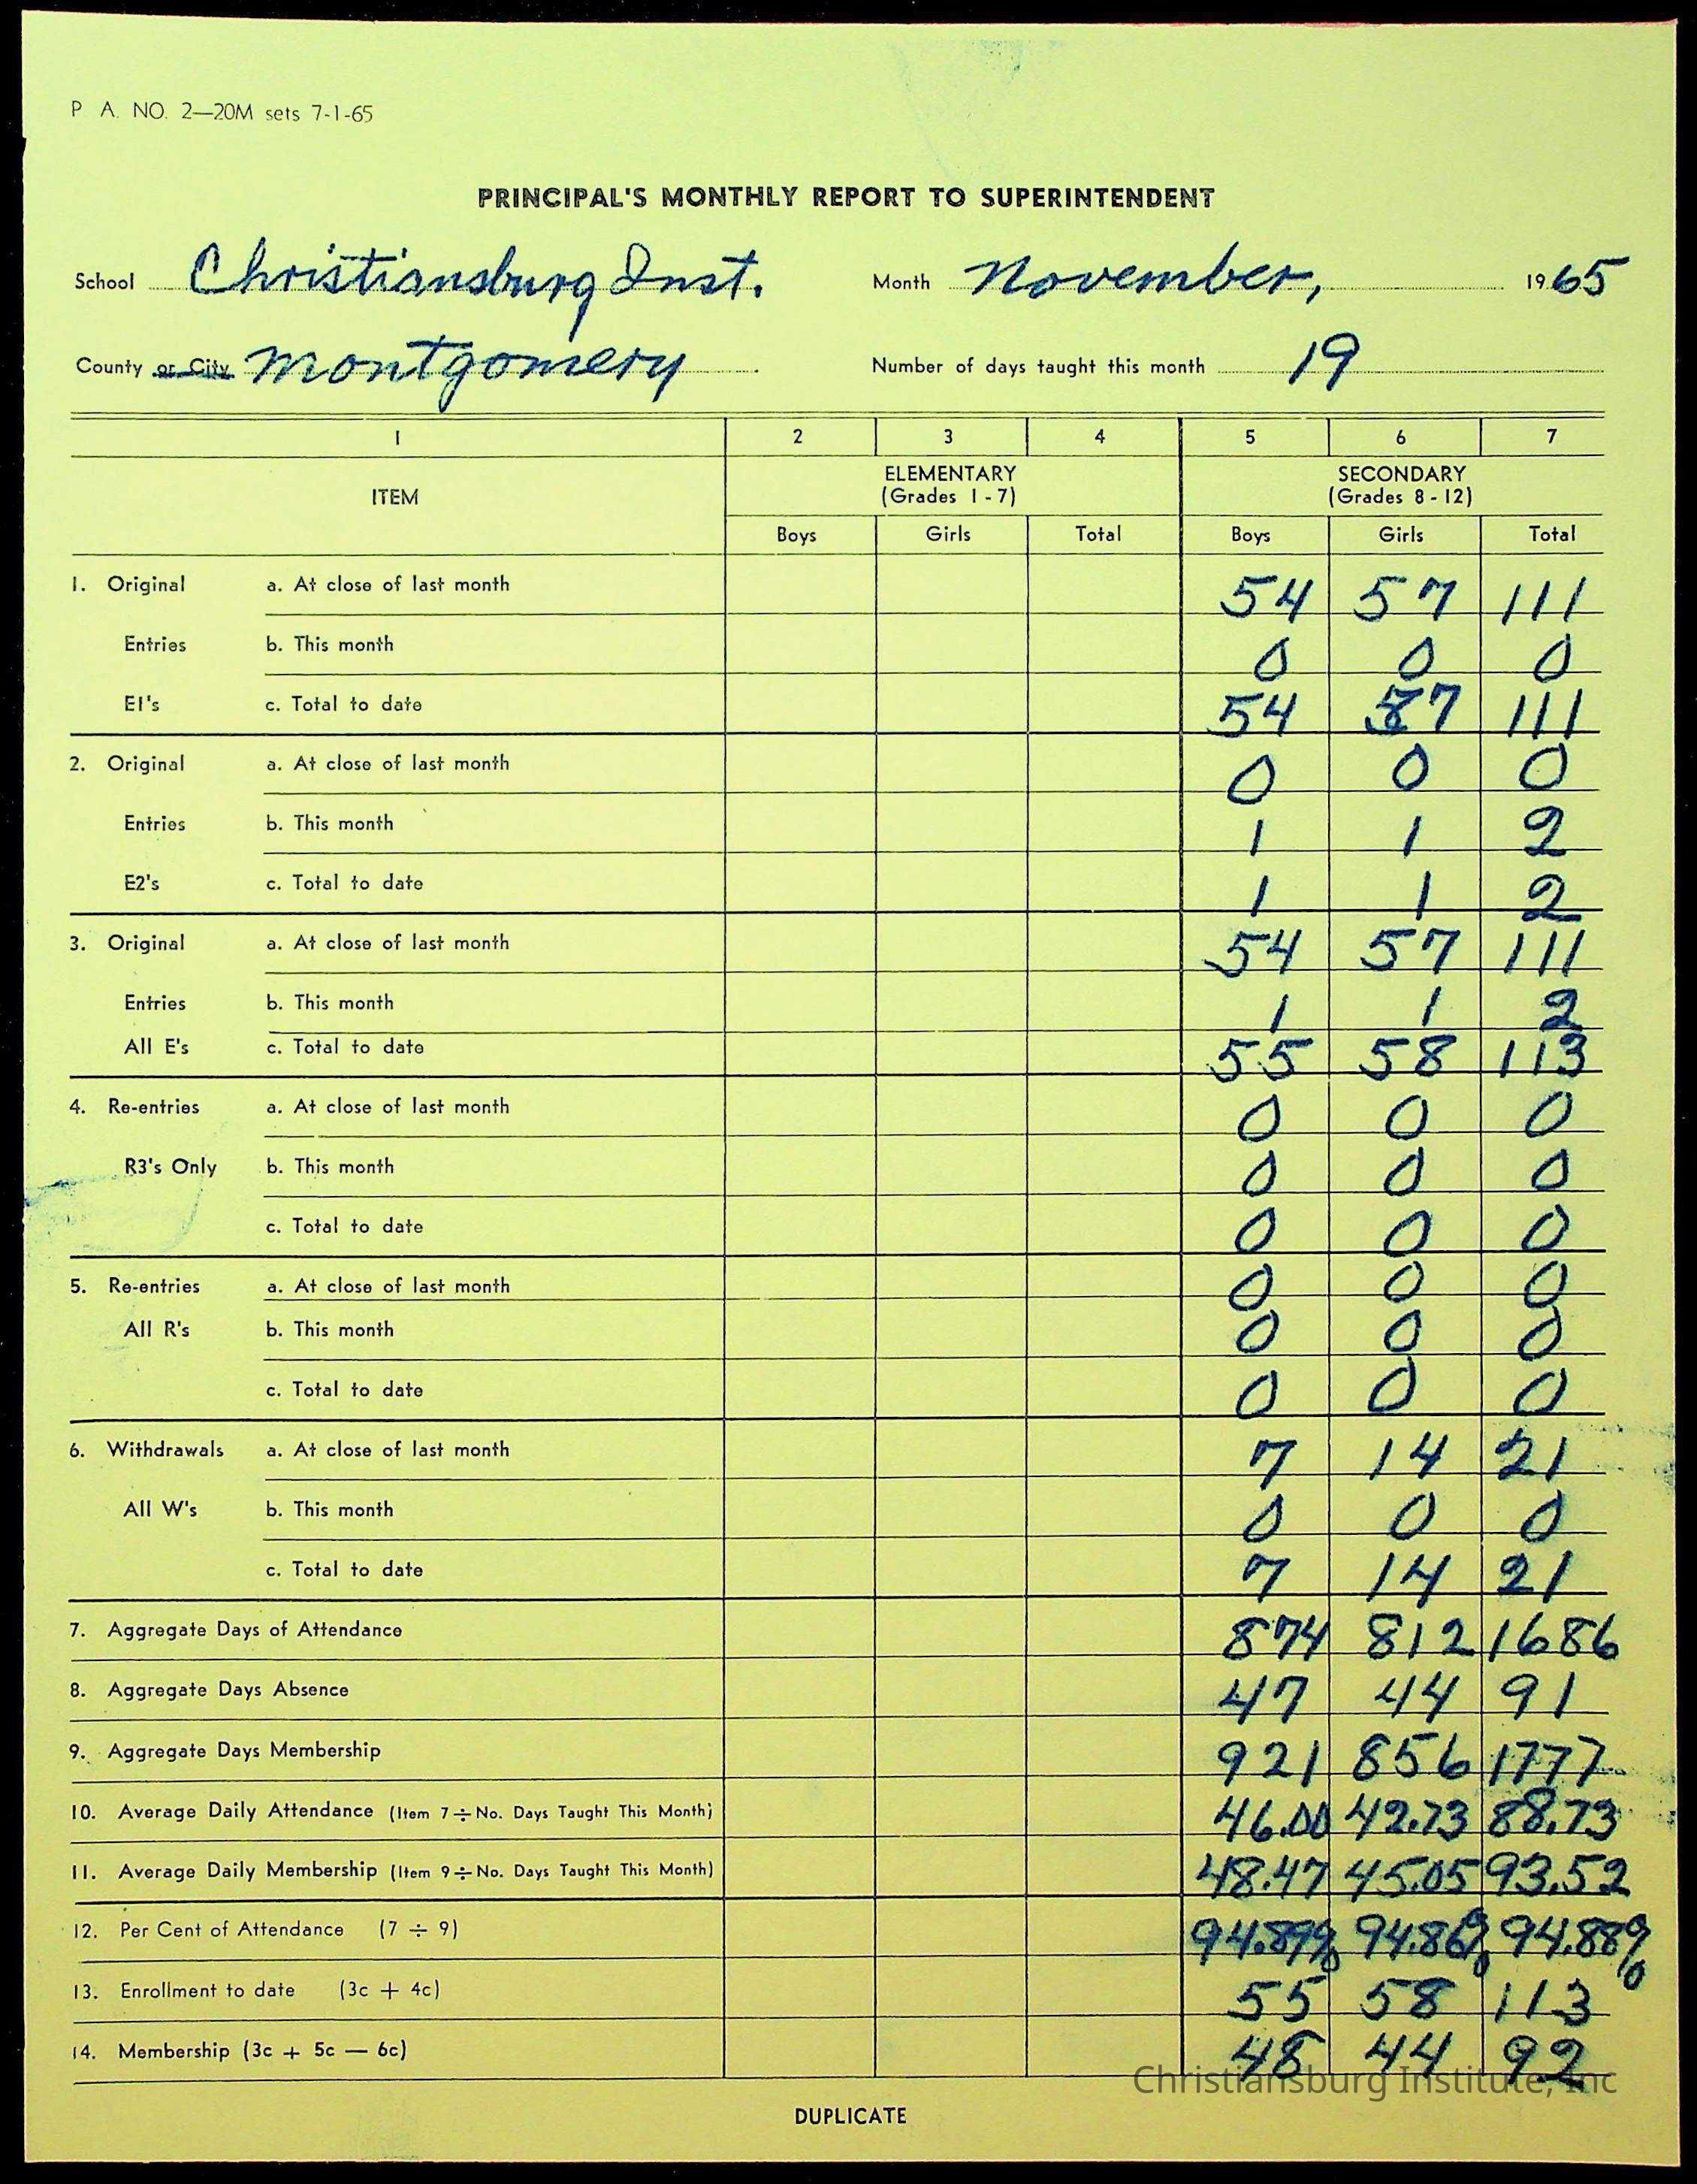 P A. NO. 2—20M sets 7-1-65
PRINCIPAL'S MONTHLY REPORT TO SUPERINTENDENT
School Christiansburg Inst. Month November, 1965
County or City Montgomery Number of days taught this month 19
1 2 3 4 5 6 7
ITEM ELEMENTARY (Grades 1 - 7) SECONDARY (Grades 8 - 12)
Boys Girls Total Boys Girls Total
1. Original a. At close of last month 54 57 111
Entries b. This month 0 0 0
E1's c. Total to date 54 57 111
2. Original a. At close of last month 0 0 0
Entries b. This month 1 1 2
E2's c. Total to date 1 1 2
3. Original a. At close of last month 54 57 111
Entries b. This month 1 1 2
All E's c. Total to date 55 58 113
4. Re-entries a. At close of last month 0 0 0
R3's Only b. This month 0 0 0
c. Total to date 0 0 0
5. Re-entries a. At close of last month 0 0 0
All R's b. This month 0 0 0
c. Total to date 0 0 0
6. Withdrawals a. At close of last month 7 14 21
All W's b. This month 0 0 0
c. Total to date 7 14 21
7. Aggregate Days of Attendance 874 812 1686
8. Aggregate Days Absence 47 44 91
9. Aggregate Days Membership 921 856 1777
10. Average Daily Attendance (Item 7 ÷ No. Days Taught This Month) 46.00 42.73 88.73
11. Average Daily Membership (Item 9 ÷ No. Days Taught This Month) 48.47 45.05 93.52
12. Per Cent of Attendance (7 ÷ 9) 94.89% 94.86% 94.88%
13. Enrollment to date (3c + 4c) 55 58 113
14. Membership (3c + 5c — 6c) 48 44 92
Christiansburg Institute, Inc
DUPLICATE